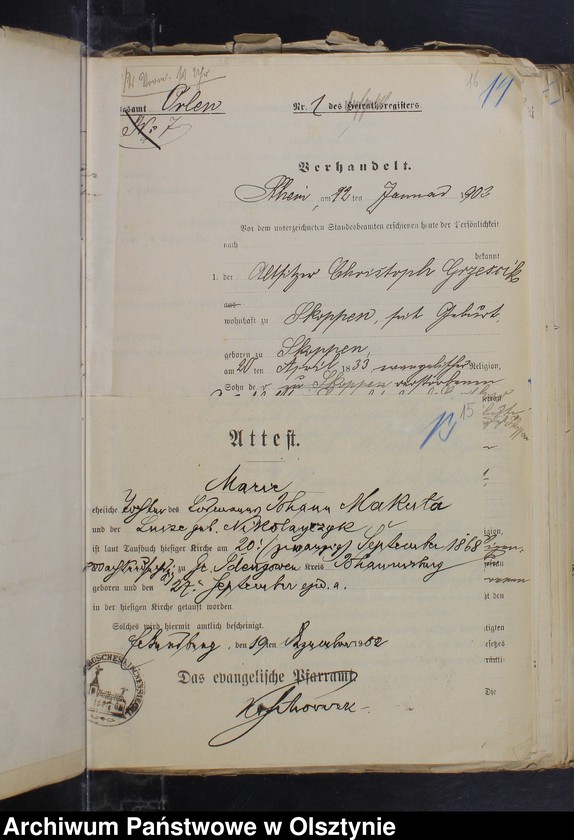 Vorm. 11 Uhr
16
14
Orlen
Nr. 1 des Heiratsregisters.
No 7
Verhandelt.
Rhein, am 22 ten Januar 1903
Vor dem unterzeichneten Standesbeamten erschienen heute der Persönlichkeit
nach
bekannt
1. der Altsitzer Christoph Grzescik
aus
wohnhaft zu Skoppen, seit Geburt,
geboren zu Skoppen,
am 20 ten April 1833 evangelischer Religion,
Sohn de zu Skoppen verstorbenen
15
13
Attest.
Marie
eheliche Tochter des Losmanns Johann Makuta
und der Luise geb. Nikolayczyk
ist laut Taufbuch hiesiger Kirche am 20. (zwanzigst) September 1868
zu Gr. Kreis Johannisburg
geboren und den 27. September ejd. a.
in der hiesigen Kirche getauft worden.
Solches wird hiermit amtlich bescheinigt.
, den 19ten 1902
Das evangelische Pfarramt
Die
Archiwum Państwowe w Olsztynie